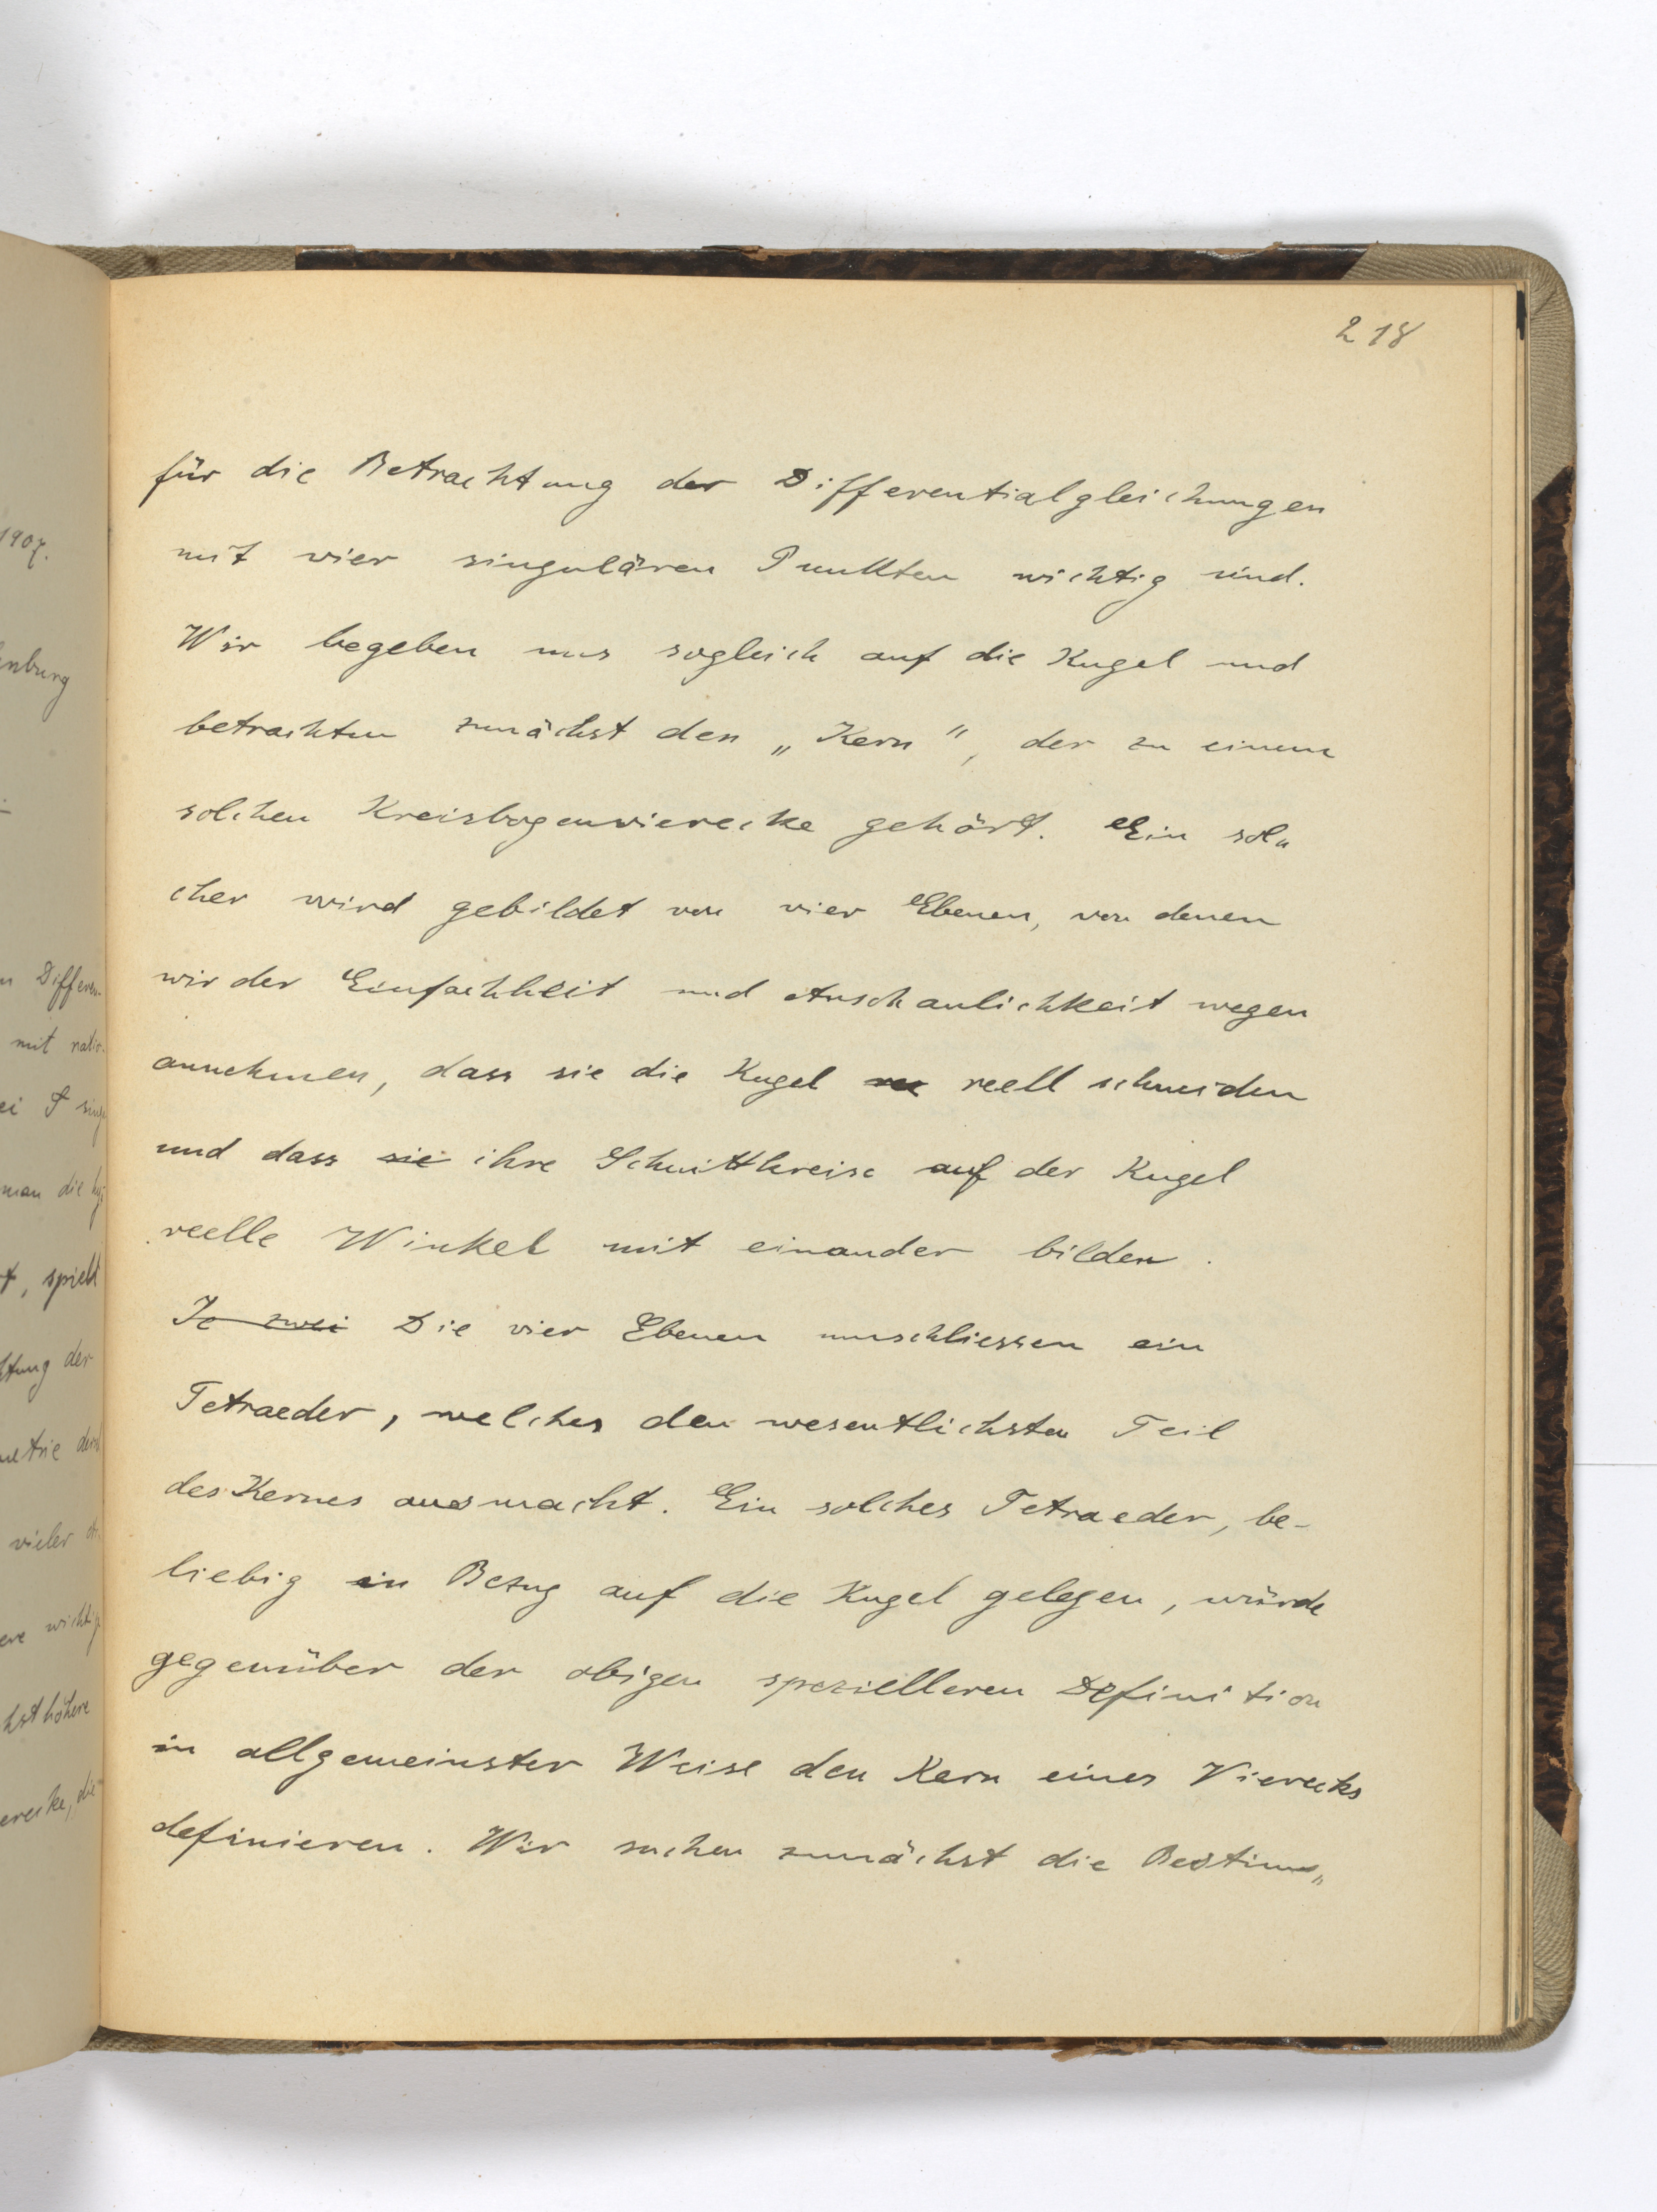 1907.
enburg
n Differen-
mit ratio-
ei S singu
man die hy
t, spielt
htung der
metrie ders
vieler
ere wichtig
hst höhere
erecke, die
218
für die Betrachtung der Differentialgleichungen
mit vier singulären Punkten wichtig sind.
Wir begeben uns sogleich auf die Kugel und
betrachten zunächst den „Kern“, der zu einem
solchen Kreisbogenvierecke gehört. Ein sol„
cher wird gebildet von vier Ebenen, von denen
wir der Einfachheit und Anschaulichkeit wegen
annehmen, dass sie die Kugel reell schneiden
und dass sie ihre Schnittkreise auf der Kugel
reelle Winkel mit einander bilden.
Je zwei Die vier Ebenen umschliessen ein
Tetraeder, welches den wesentlichsten Teil
des Kernes ausmacht. Ein solches Tetraeder, be-
liebig in Bezug auf die Kugel gelegen, würde
gegenüber der obigen spezielleren Definition
in allgemeinster Weise den Kern eines Vierecks
definieren. Wir suchen zunächst die Bestim„